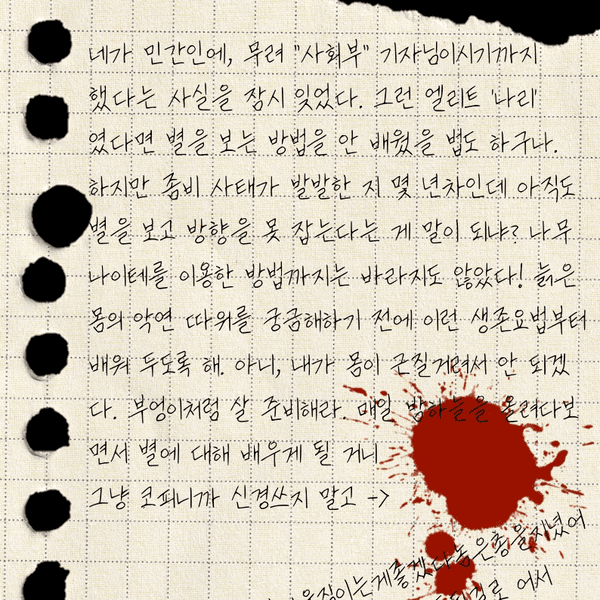 네가 민간인에, 무려 "사회부" 기자님이시기까지
했다는 사실을 잠시 잊었다. 그런 엘리트 '나리'
였다면 별을 보는 방법을 안 배웠을 법도 하구나.
하지만 좀비 사태가 발발한 지 몇 년차인데 아직도
별을 보고 방향을 못 잡는다는 게 말이 되냐? 나무
나이테를 이용한 방법까지는 바라지도 않았다! 늙은
몸의 악연 따위를 궁금해하기 전에 이런 생존요법부터
배워 두도록 해. 아니, 내가 몸이 근질게려서 안 되겠
다. 부엉이처럼 살 준비해라. 매일 밤하늘을 올려다보
면서 별에 대해 배우게 될 거니
그냥 코피니까 신경쓰지 말고 ->
움직이는게좋겠다
어서